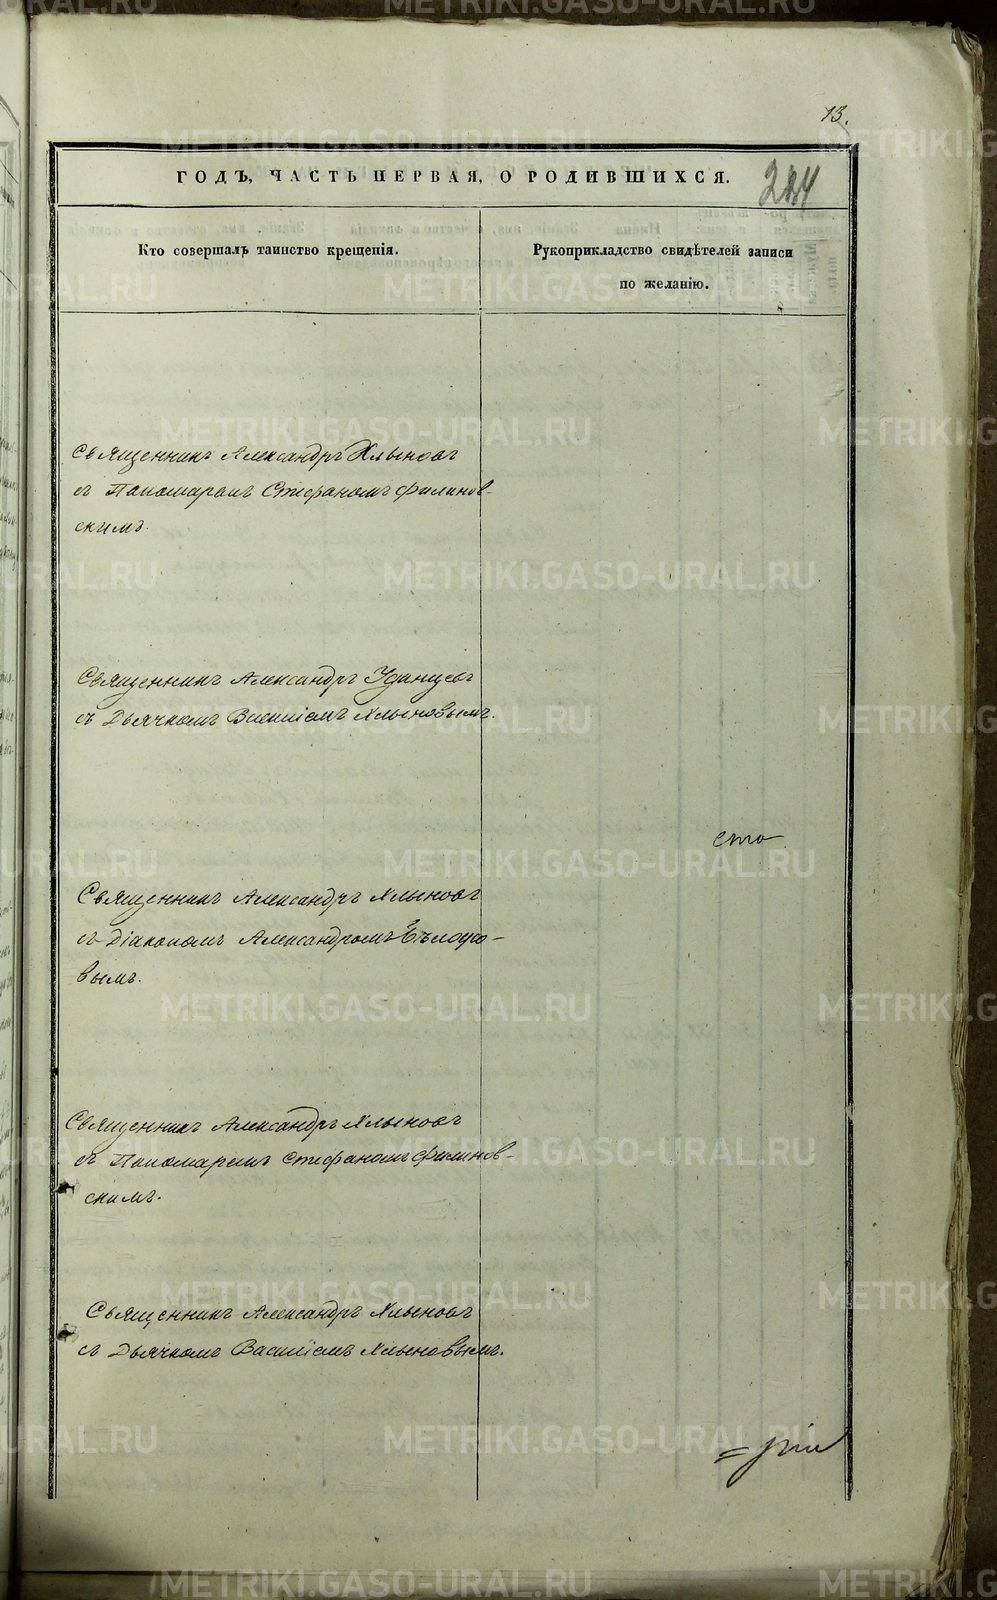 13.
ГОДЪ, ЧАСТЬ ПЕРВАЯ, О РОДИВШИХСЯ.
224
Кто совершалъ таинство крещенія.
Рукоприкладство свидѣтелей записи
по желанію.
Священникъ Александръ Хлыновъ
съ Пономаремъ Стефаномъ Филинов-
скимъ.
Священникъ Александръ Удинцевъ
съ Дьячкомъ Василіемъ Хлыновымъ.
сто
Священникъ Александръ Хлыновъ
съ Діакономъ Александромъ
вымъ.
Священникъ Александръ Хлыновъ
съ Пономаремъ Стефаномъ Филинов-
скимъ.
Священникъ Александръ Хлыновъ
съ Дьячкомъ Василіемъ Хлыновымъ.
METRIKI.GASO-URAL.RU